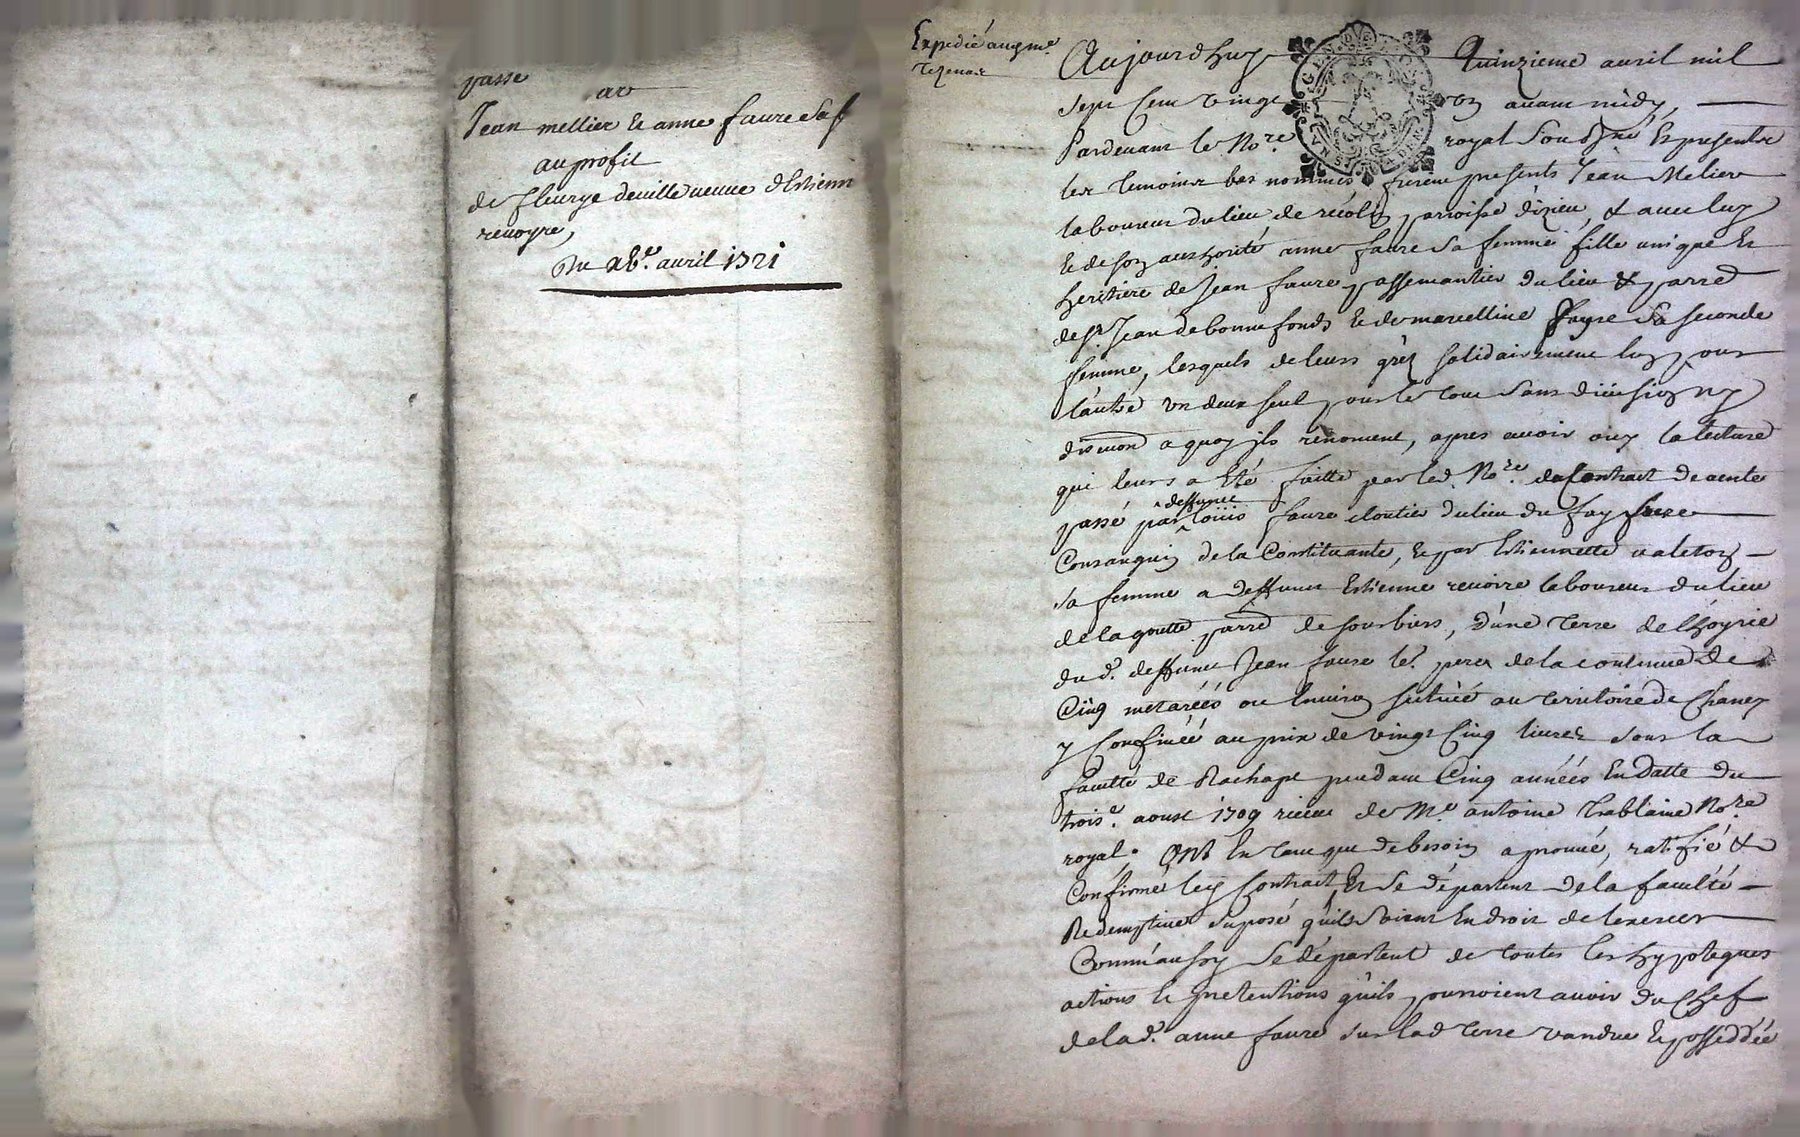 passe
par
Jean mellier & anne faure sa f
au profit
de fleurye deville veuve d'Estienne
revoyre,
Du xbe. avril 1721
Expedié augme
Aujourdhuy Quinzieme avril mil
sept Cent vingt un avant midy,
Pardevant le Nore royal soubsné Et presents
les temoins bas nommés furent presents Jean Melier
laboureur du lieu de récolin parroisse d'izieu, & avec luy
& de son authorité anne faure sa femme fille unique Et
heritiere de Jean faure passemantier du lieu & parred
de st. Jean de bonnefonds & de marcelline fayre sa seconde
femme, lesquels de leurs gréz solidairement luy pour
l'autre un deux seul pour le tout sans division ny
discution a quoy ils renoncent, apres avoir ouy la lecture
qui leurs a Eté faitte par led. Nore. du Contrait de vente
passé par deffunct loüis faure cloutier du lieu du fay frere
Consanguin de la Constituante, & par Estiennette valeton
sa femme a deffunct Estienne revoire laboureur du lieu
de la goutte parred de sourbiers, d'une terre de l'hoyrie
du d. deffunct Jean faure le pere de la contenue de
Cinq metaréés ou Environ scituéé au territoire de Chaney
y Confinéé au prix de vingt Cinq livres sous la
faculté de Rachapt pendant Cinq annéés En datte du
trois e. aoust 1709 receu de Me. antoine tablaine Nore
royal. Ont En tant que de besoin aprouvé, ratifié &
Confirmé ley Contrait, Et se départent de la faculté
Redemptive suposé qu'ils soient En droit de lexercer
Comm'aussy se départent de toutes les hypoteques
actions & pretentions qu'ils pourroient avoir du Chef
de la d. anne faure sur lad terre vandue & posseddéé